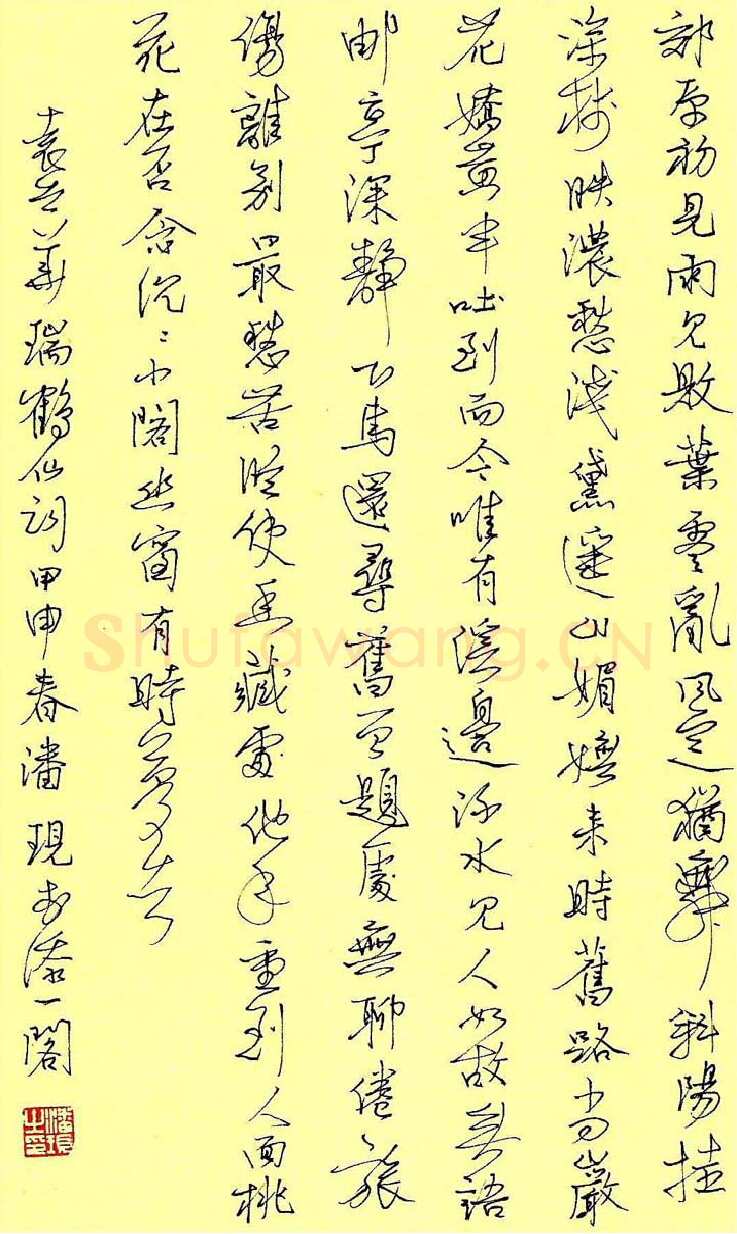 郊原初見雨見敗葉零亂風定猶舞斜陽挂
深樹映濃愁淺黛遙山媚嫵来時舊路尚巖
花嬌黃半吐到而今唯有溪邊流水見人如故無語
郵亭深靜下馬還尋舊曾題處無聊倦旅
傷離別最愁苦縱使香藏處他年重到人面桃
花在否念沉〻小閣幽窗有時夢去
袁去華瑞鶴仙詞甲申春潘現书一閣
潘現之印
shufawang.CN